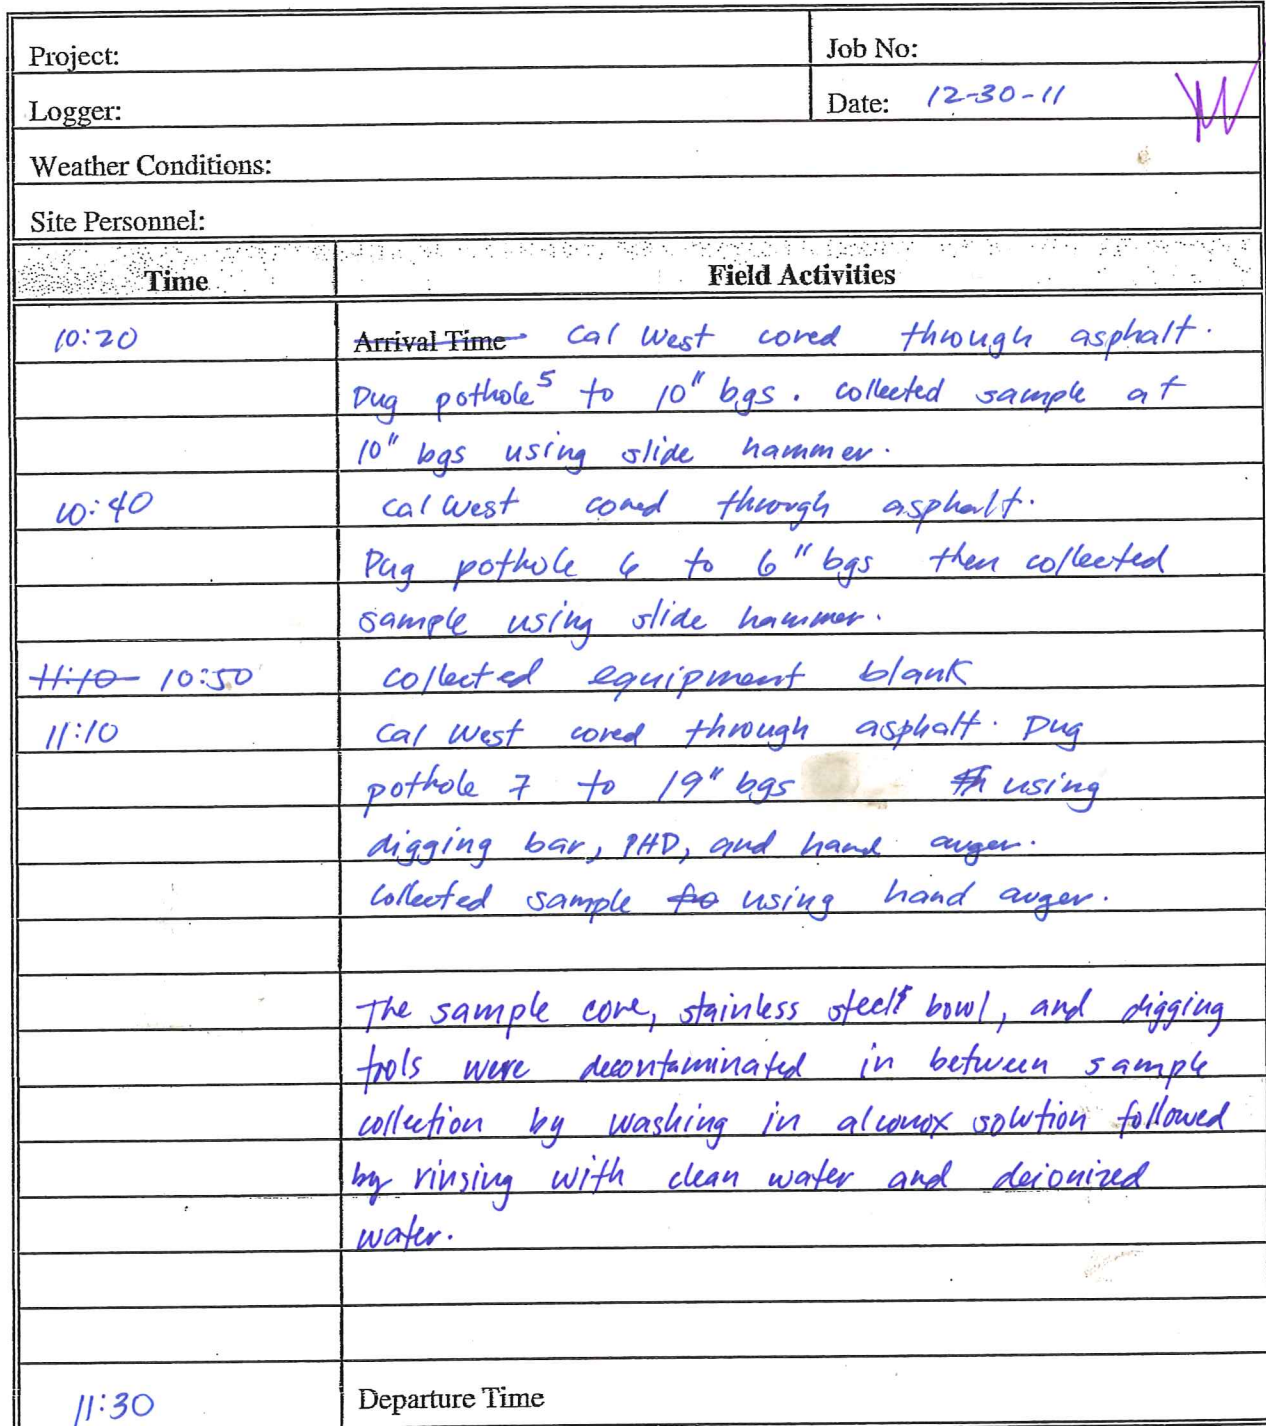 Project: Job No:
Logger: Date: 12-30-11
Weather Conditions:
Site Personnel:
Time Field Activities
10:20 Arrival Time Cal West cored through asphalt.
Dug pothole 5 to 10" bgs. collected sample at
10" bgs using slide hammer.
10:40 Cal West cored through asphalt.
Dug pothole 6 to 6" bgs then collected
sample using slide hammer.
11:10 10:50 collected equipment blank
11:10 Cal West cored through asphalt. Dug
pothole 7 to 19" bgs using
digging bar, PHD, and hand auger.
Collected sample using hand auger.
The sample core, stainless steel bowl, and digging
tools were decontaminated in between sample
collection by washing in alconox solution followed
by rinsing with clean water and deionized
water.
11:30 Departure Time